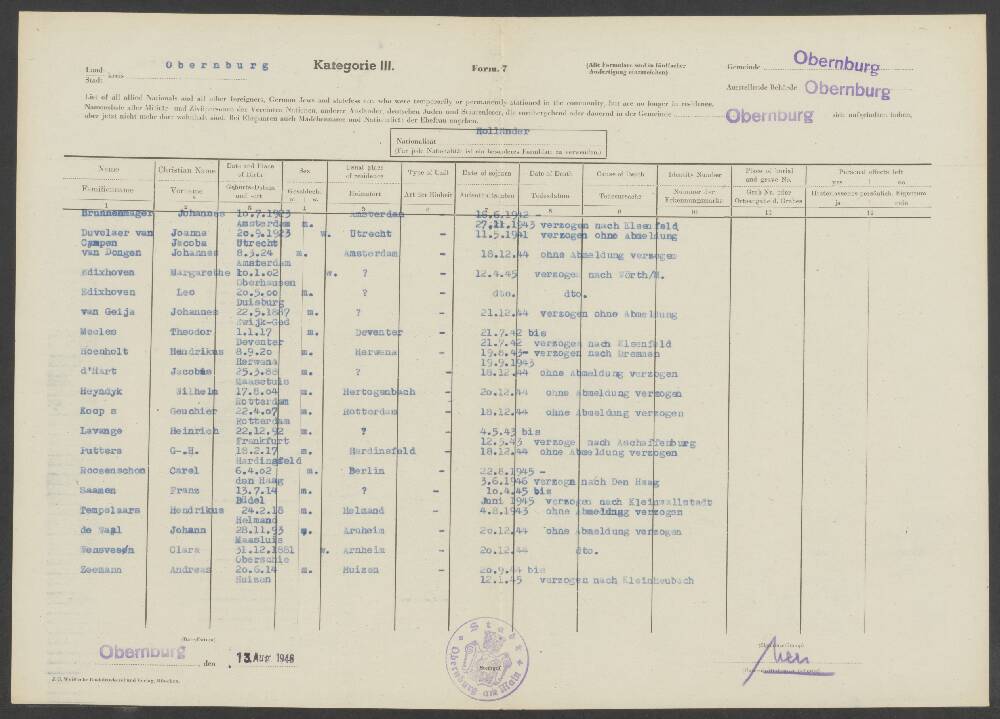 Land
Stadt kreis Obernburg
Kategorie III.
Form. 7
(Alle Formulare sind in fünffacher
Ausfertigung einzureichen)
Gemeinde Obernburg
Ausstellende Behörde Obernburg
List of all allied Nationals and all other foreigners, German Jews and stateless etc. who were temporarily or permanently stationed in the community, but are no longer in residence.
Namensliste aller Militär- und Zivilpersonen der Vereinten Nationen, anderer Ausländer, deutschen Juden und Staatenloser, die vorübergehend oder dauernd in der Gemeinde Obernburg sich aufgehalten haben,
aber jetzt nicht mehr dort wohnhaft sind. Bei Eheganten auch Mädchenname und Nationalität der Ehefrau angeben.
Holländer
Nationalität
(Für jede Nationalität ist ein besonderes Formblatt zu verwenden)
Name Christian Name Date and Place of Birth Sex Usual place of residence Type of Unit Date of sojourn Date of Death Cause of Death Identity Number Place of burial and grave No. Personal effects left yes no
Familienname Vorname Geburts-Datum und -ort Geschlecht m. w. Heimatort Art der Einheit Aufenthaltszeiten Todesdatum Todesursache Nummer der Erkennungsmarke Grab Nr. oder Ortsangabe d. Grabes Hinterlassenes persönlich. Eigentum ja nein
1 2 3 4 5 6 7 8 9 10 11 12
Brunnenmager Johannes 10.7.1923 Amsterdam 16.6.1942 -
Amsterdam m. 27.11.1943 verzogen nach Elsenfeld
Duvelaer van Joanna 20.9.1923 w. Utrecht - 11.5.1941 verzogen ohne Abmeldung
Campen Jacoba Utrecht
van Dongen Johannes 8.3.24 m. Amsterdam - 18.12.44 ohne Abmeldung verzogen
Amsterdam
Edixhoven Margarethe 10.1.02 w. ? - 12.4.45 verzogen nach Wörth/M.
Oberhausen
Edixhoven Leo 20.5.00 m. ? - dto. dto.
Duisburg
van Geija Johannes 22.5.1887 m. ? - 21.12.44 verzogen ohne Abmeldung
Ewijk-Ged
Mecles Theodor 1.1.17 m. Deventer - 21.7.42 bis
Deventer 21.7.42 verzogen nach Elsenfeld
Hoenholt Hendrikus 8.9.20 m. Herwena - 19.8.43- verzogen nach Bremen
Herwena 19.9.1943
d'Hart Jacobus 25.3.88 m. ? - 18.12.44 ohne Abmeldung verzogen
Maassluis
Heyndyk Wilhelm 17.8.04 m. Hertogenbach - 20.12.44 ohne Abmeldung verzogen
Rotterdam
Koop s Geuchier 22.4.07 m. Rotterdam - 18.12.44 ohne Abmeldung verzogen
Rotterdam
Lavange Heinrich 22.12.92 m. ? - 4.5.43 bis
Frankfurt 12.5.43 verzoge nach Aschaffenburg
Putters G-.H. 18.2.17 m. Hardinsfeld - 18.12.44 ohne Abmeldung verzogen
Hardingsfeld
Roosenschon Carel 6.4.02 m. Berlin 22.8.1945 -
den Haag 3.6.1946 verzogn nach Den Haag
Saamen Franz 13.7.14 m. ? - 10.4.45 bis
Bidel Juni 1945 verzogen nach Kleinwallstadt
Tempelaars Hendrikus 24.2.18 m. Helmand - 4.8.1943 ohne Abmeldung verzogen
Helmand
de Waal Johann 28.11.93 m. Arnheim - 20.12.44 ohne Abmeldung verzogen
Maasluis
Wensveen Clara 31.12.1881 w. Arnheim - 20.12.44 dto.
Oberschie
Zeemann Andreas 20.6.14 m. Huizen - 20.9.44 bis
Huizen 12.1.45 verzogen nach Kleinheubach
Obernburg, den 13. Aug. 1946
Stadt
Stempel
Obernburg am Main